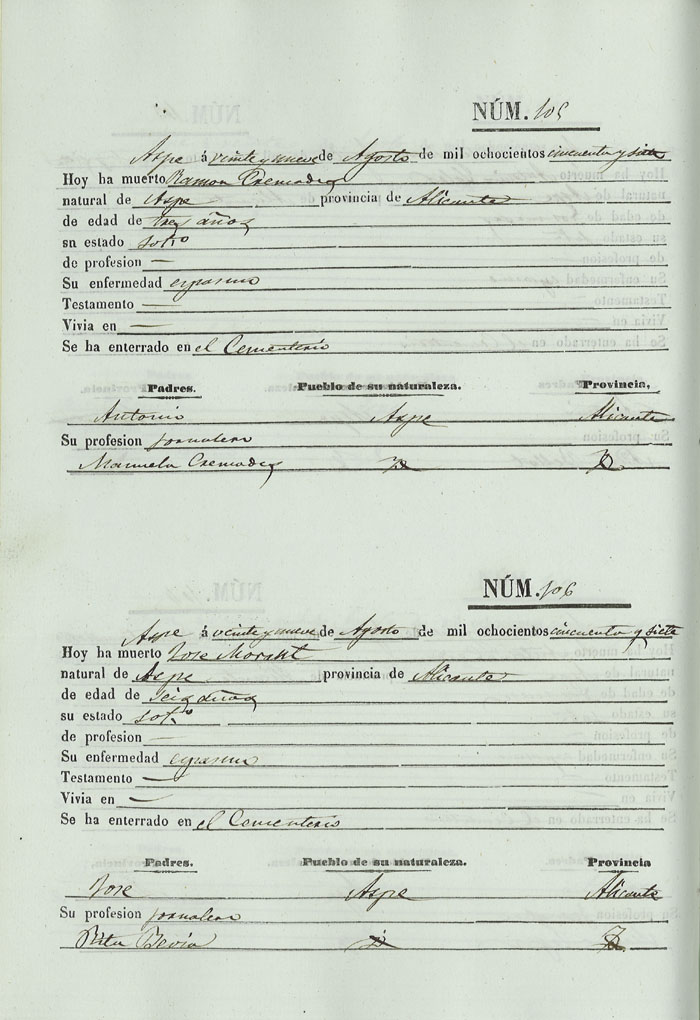 NÚM. 105
Aspe á veinte y nueve de Agosto de mil ochocientos cincuenta y siete
Hoy ha muerto Ramon Cremades
natural de Aspe provincia de Alicante
de edad de tres años
sn estado solt.o
de profesion —
Su enfermedad espasmo
Testamento —
Vivia en —
Se ha enterrado en el Cementerio
Padres. Pueblo de su naturaleza. Provincia,
Antonio Aspe Alicante
Su profesion jornalero
Manuela Cremades
NÚM. 106
Aspe á veinte y nueve de Agosto de mil ochocientos cincuenta y siete
Hoy ha muerto Jose
natural de Aspe provincia de Alicante
de edad de seis años
su estado solt.o
de profesion —
Su enfermedad espasmo
Testamento —
Vivia en —
Se ha enterrado en el Cementerio
Padres. Pueblo de su naturaleza. Provincia
Jose Aspe Alicante
Su profesion jornalero
Rita Bevia